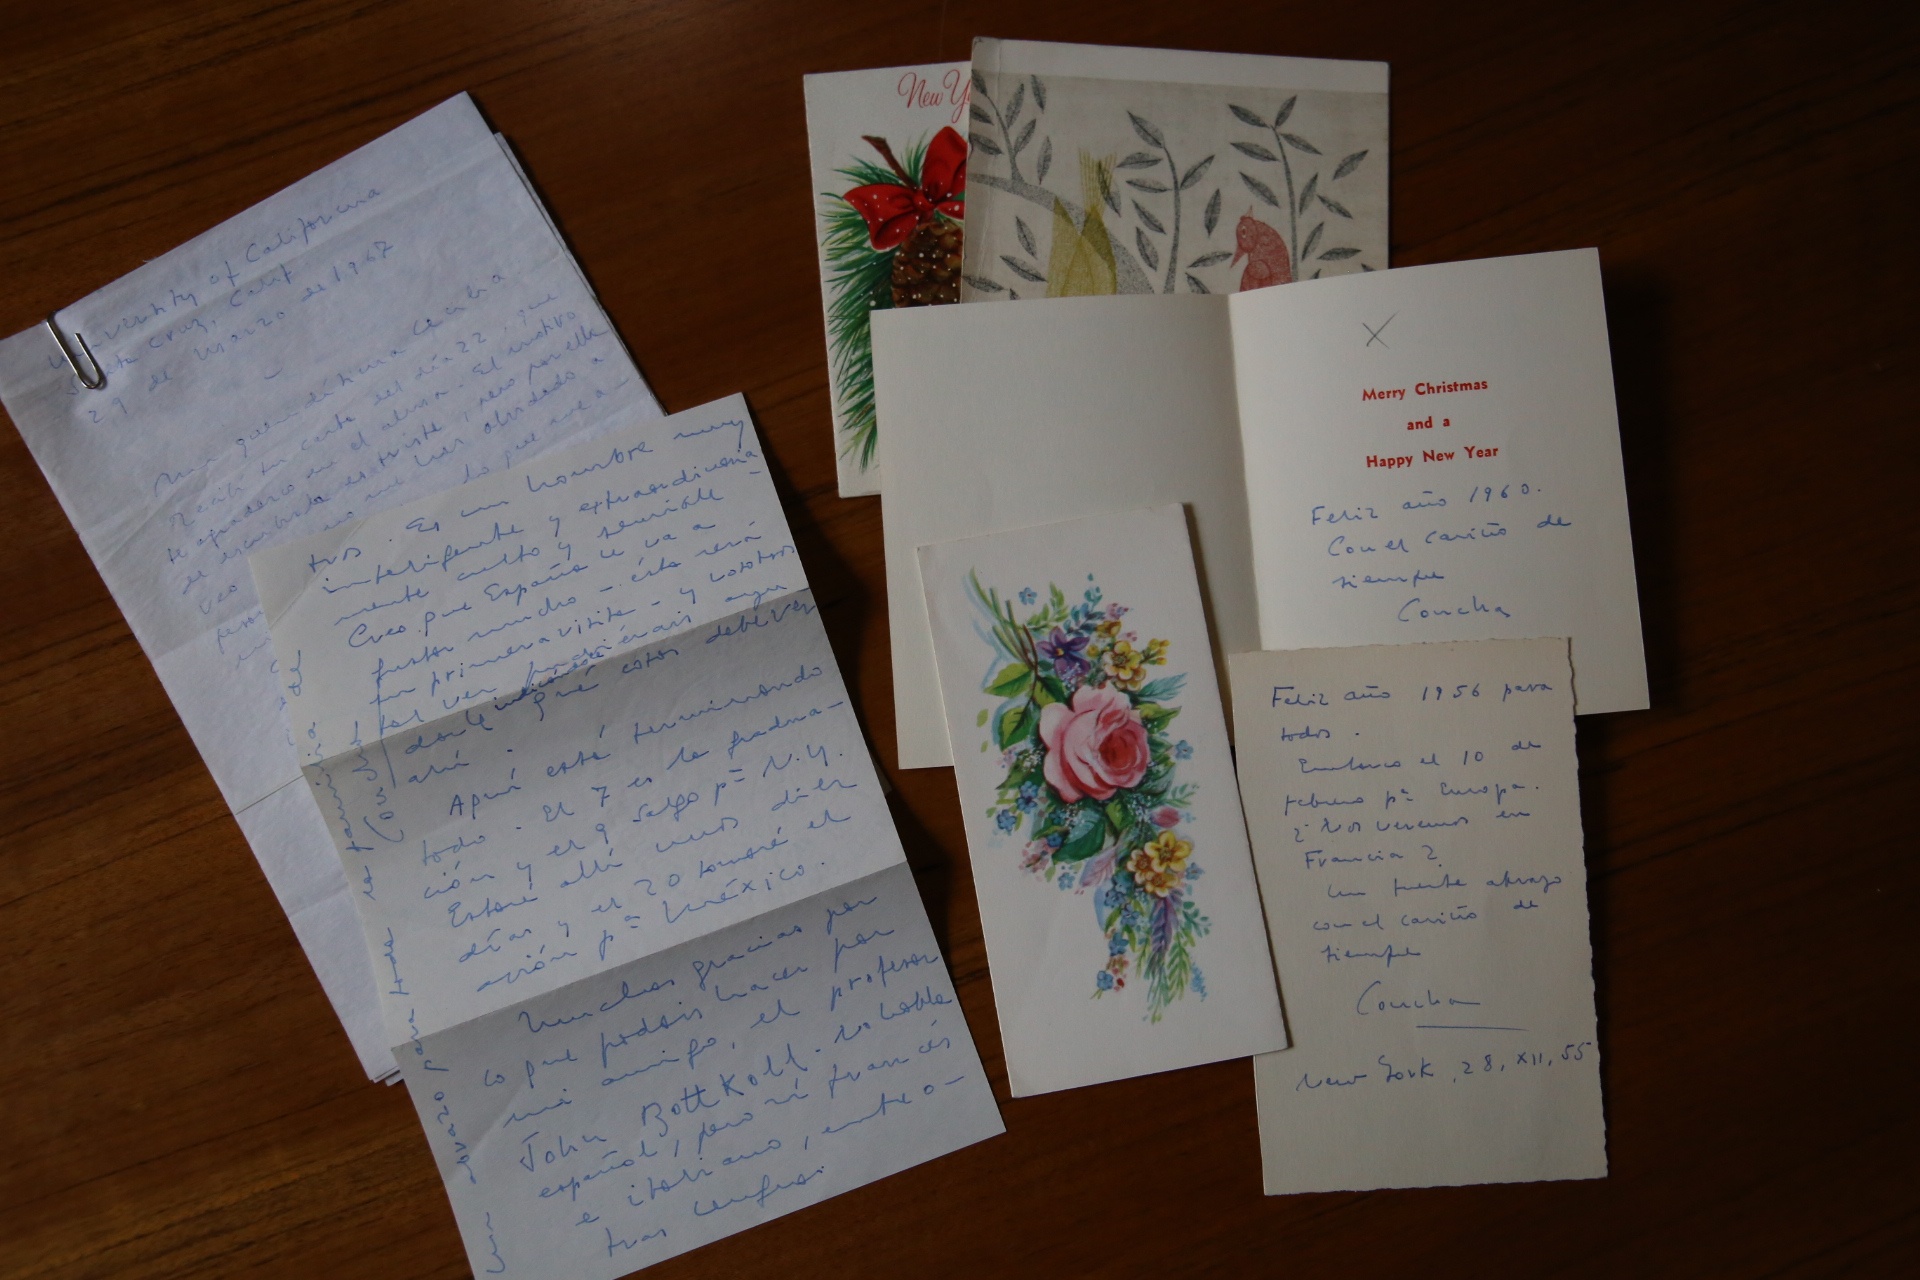 University of California
Santa Cruz, Calif.
29 de Marzo de 1967
Mi queridísima
Recibí tu carta del día 22, que
te agradezco en el alma. El motivo
de escribirla es triste, pero por ella
veo
tros. Es un hombre muy
inteligente y extraordinaria-
mente culto y sensible
Creo que España le va a
gustar mucho - ésta será
su primera visita - y vosotros
tal vez podríais
decirle qué cosas debe ver
ahí.
Aquí está terminando
todo. El 7 es la gradua-
ción y el 9 salgo pª N.Y.
Estaré allí unos diez
días y el 20 tomaré el
avión pª México.
Muchas gracias por
lo que podáis hacer por
mi amigo, el profesor
John Bottkoll. No habla
español, pero sí francés
e italiano, entre o-
tras lenguas.
Un abrazo para toda
la familia de
Concha
New Y
X
Merry Christmas
and a
Happy New Year
Feliz año 1960.
Con el cariño de
siempre
Concha
Feliz año 1956 para
todos.
Embarco el 10 de
febrero pª Europa.
¿Nos veremos en
Francia?
Un fuerte abrazo
con el cariño de
siempre
Concha
New York, 28, XII, 55